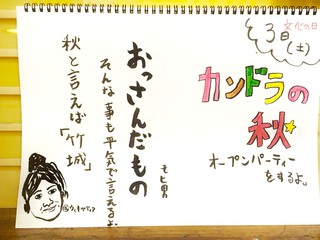 3日(土)
文化の日
カンドラの
秋
オープンパーティー
をするよ。
おっさんだもの
モヒ男
そんな事も平気で言えるよ
秋と言えば「竹城」